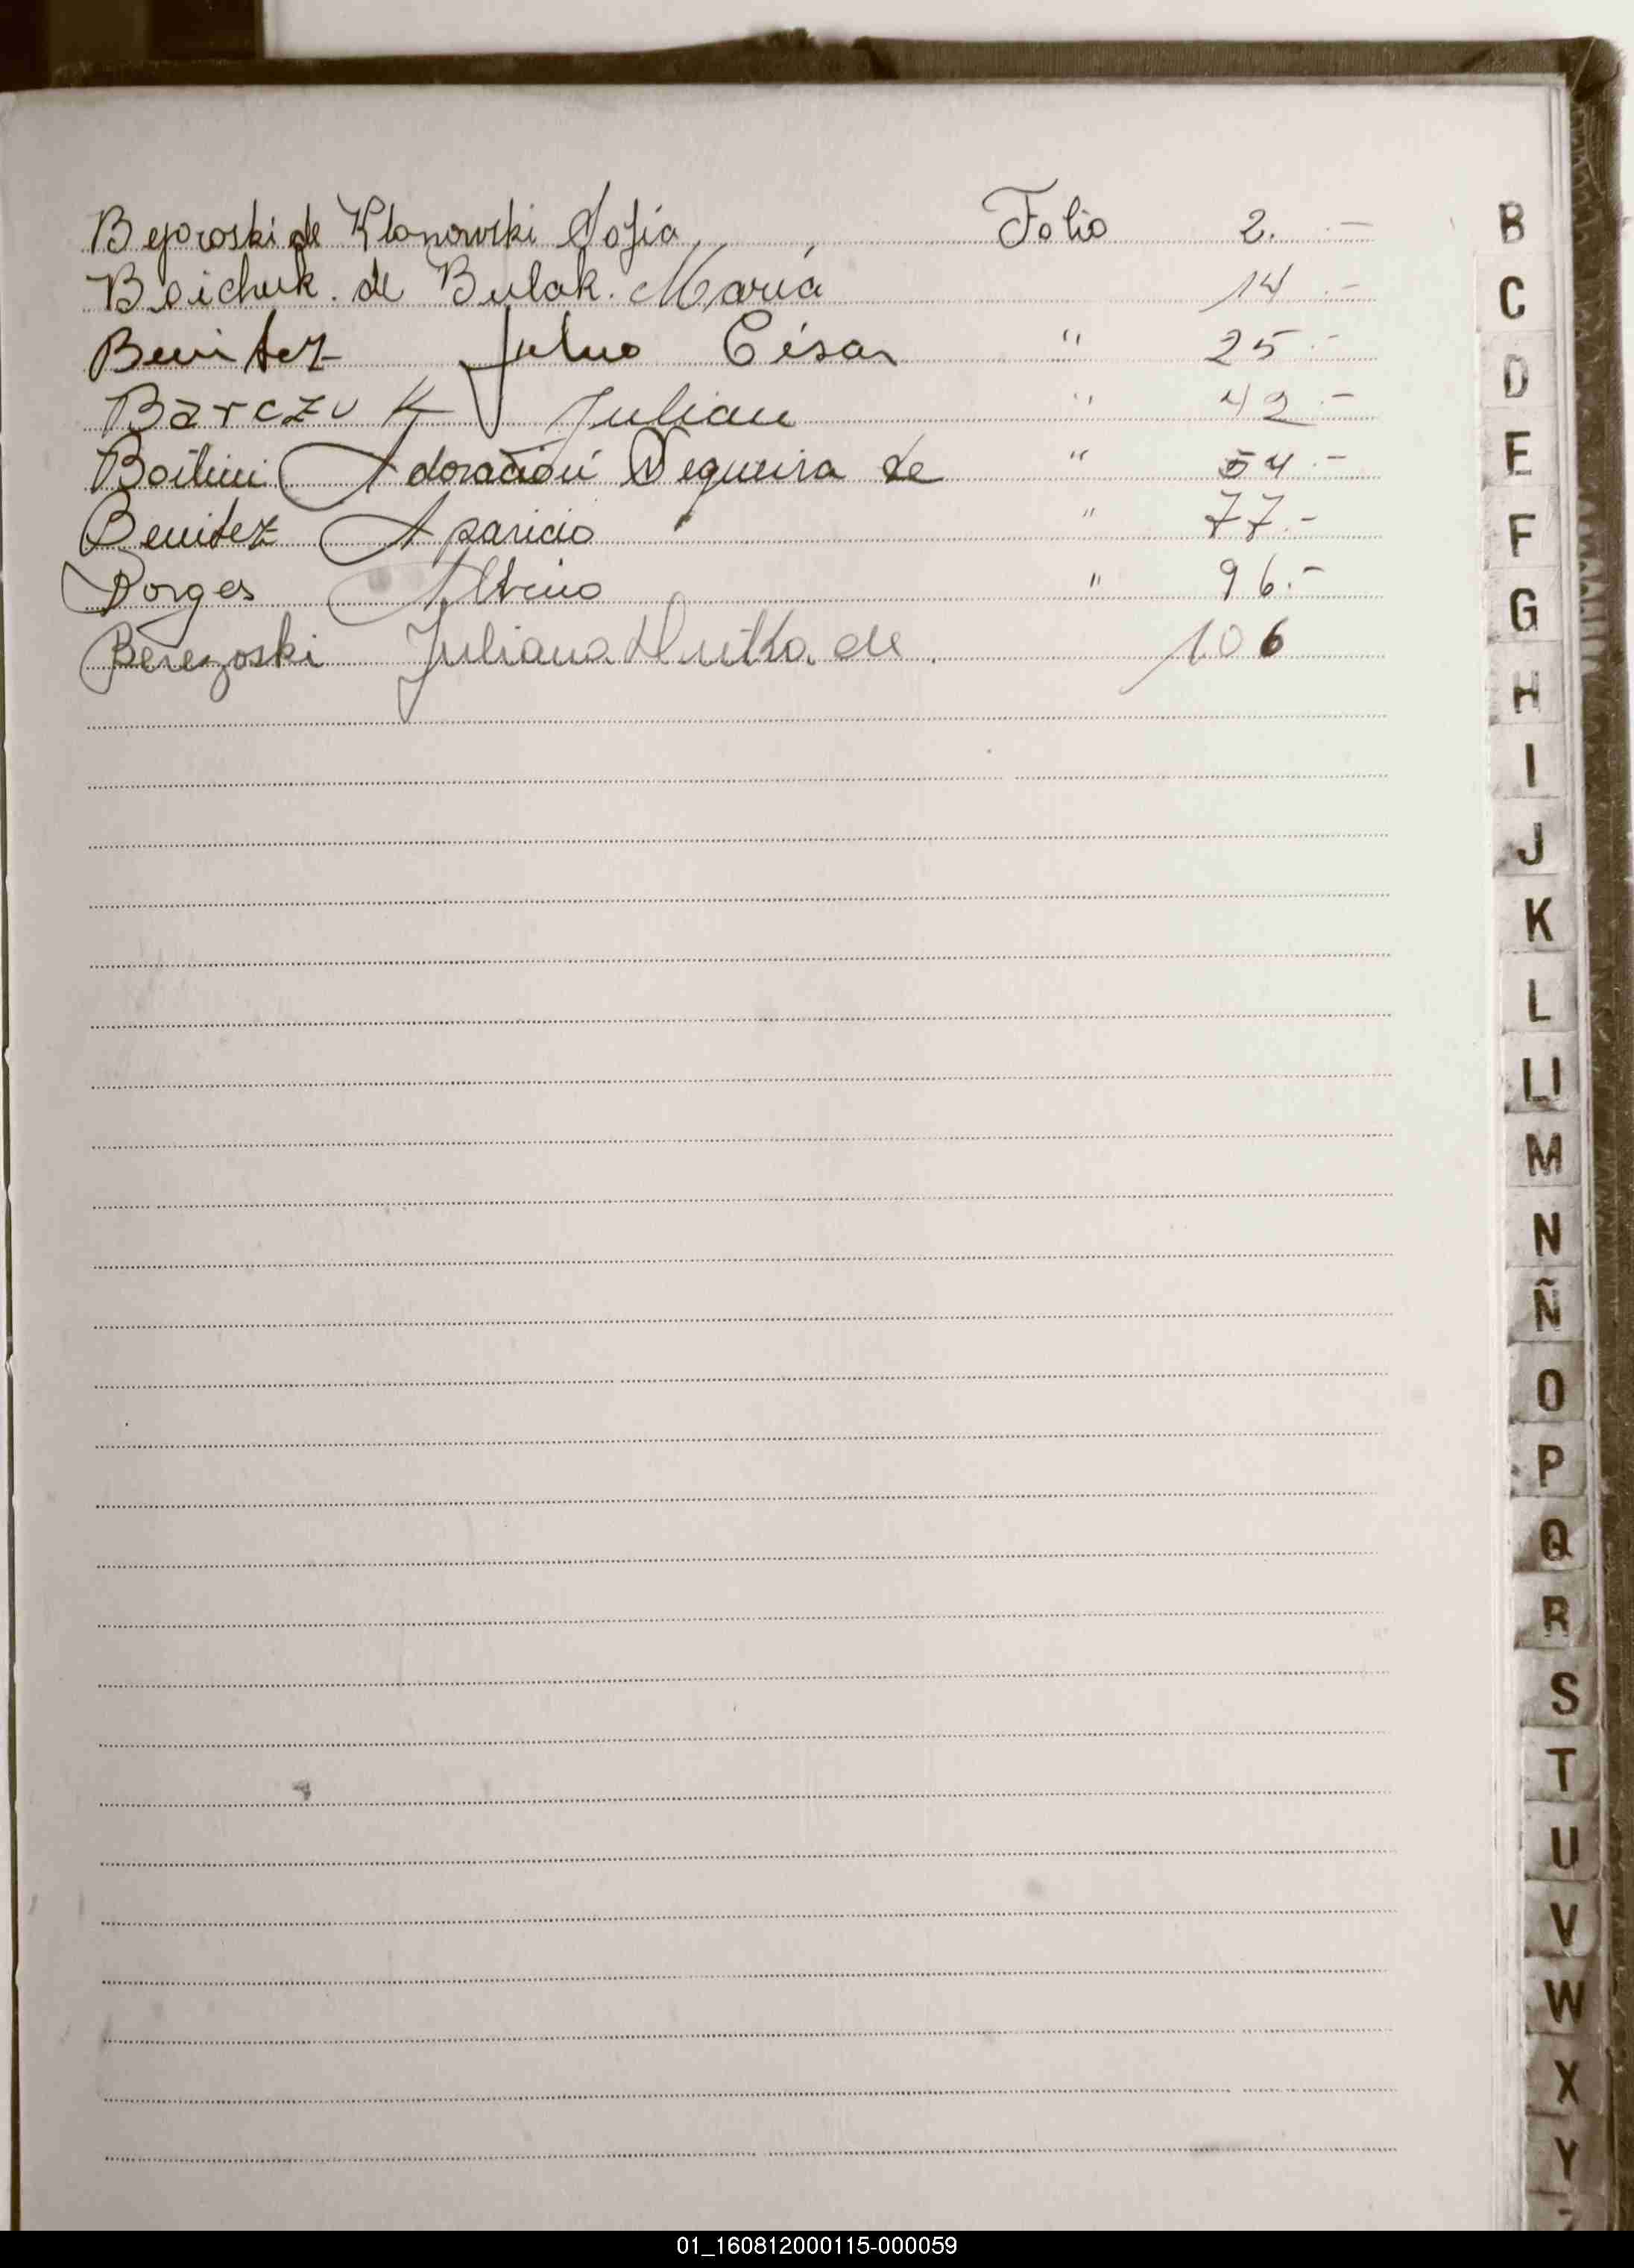 de Klanowski Sofia Folio 2. —
Boichuk. de Bulak. María 14 . —
Benitez Julio César " 25 . —
Barczuk Julian " 42 . —
Adoración Sequeira de " 54 . —
Benitez Aparicio " 77 . —
Borges " 96 . —
Berezoski Juliana de . 106
B
C
D
E
F
G
H
I
J
K
L
Ll
M
N
Ñ
O
P
Q
R
S
T
U
V
W
X
Y
01_160812000115-000059